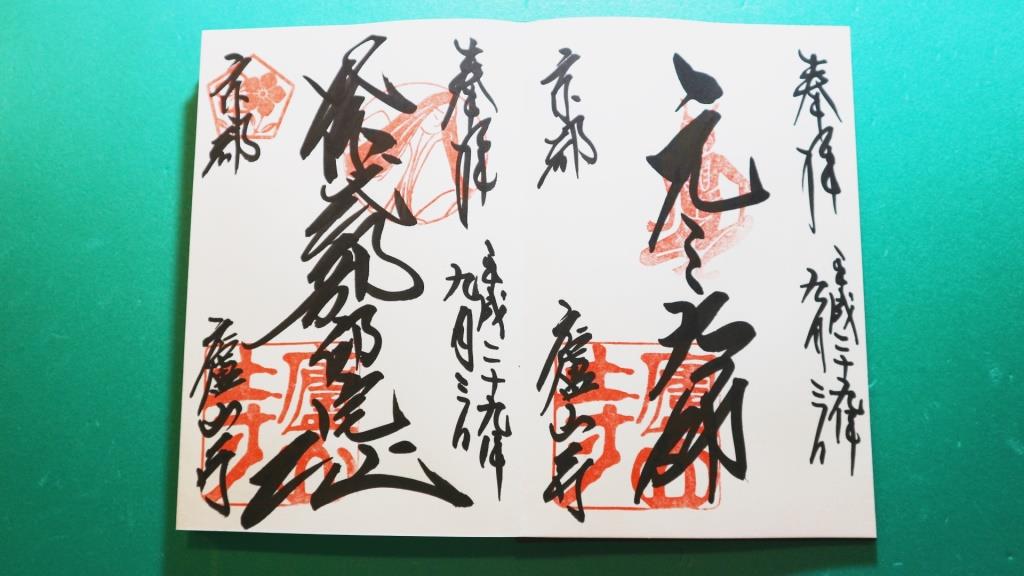 奉拝
平成二十九年
九月三日
元三大師
京都
廬山寺
廬山寺
奉拝
平成二十九年
九月三日
紫式部邸宅址
京都
廬山寺
廬山寺